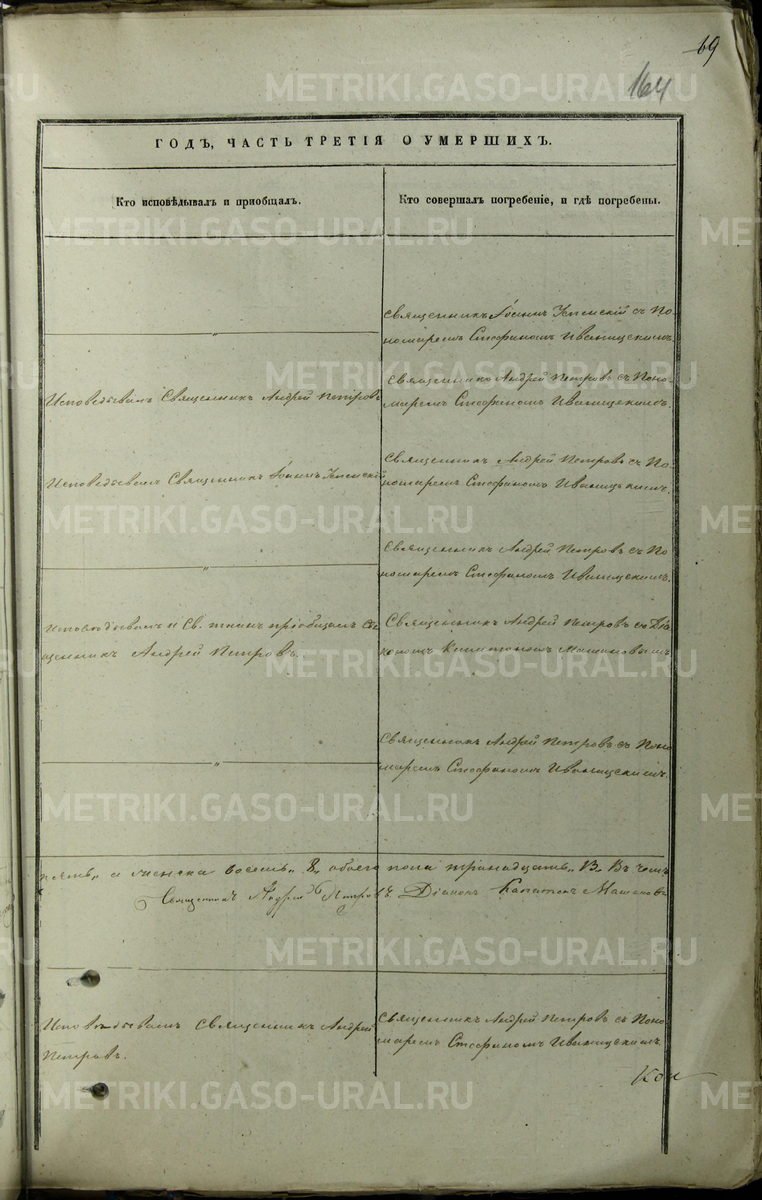 69
164
ГОДЪ, ЧАСТЬ ТРЕТІЯ О УМЕРШИХЪ.
Кто исповѣдывалъ и пріобщалъ.
Кто совершалъ погребеніе, и гдѣ погребены.
Священникъ Іоаннъ Успенскій съ По-
номаремъ Стефаномъ Иваницскимъ.
Исповѣдывалъ Священникъ Андрей Петровъ
Священникъ Андрей Петровъ съ Поно-
маремъ Стефаномъ Иваницскимъ.
Исповѣдывалъ Священникъ Іоаннъ Успенскій
Священникъ Андрей Петровъ съ По-
номаремъ Стефаномъ Иваницскимъ.
Священникъ Андрей Петровъ съ По
номаремъ Стефаномъ Иваницскимъ.
Исповѣдывалъ и Св. таинъ пріобщалъ Свя
щенникъ Андрей Петровъ.
Священникъ Андрей Петровъ съ Діа
кономъ Капитономъ Машановымъ
Священникъ Андрей Петровъ съ Поно
маремъ Стефаномъ Иваницскимъ.
пять, а женска восемь „8„ обоего пола тринадцать „13„ Въ чемъ
Священникъ Андрей Петровъ. Діаконъ Капитонъ Машановъ
Исповѣдывалъ Священникъ Андрей
Петровъ.
Священникъ Андрей Петровъ съ Поно
маремъ Стефаномъ Иваницскимъ.
Кон
METRIKI.GASO-URAL.RU